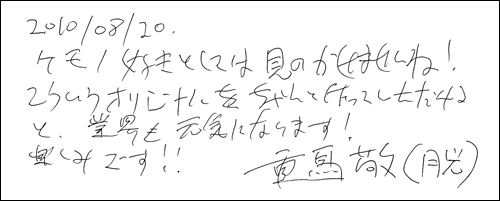 2010/08/20.
ケモノ好きとしては見のがせませんね!
こういうオリジナルをちゃんと作ってしただける
と、業界も元気になります!
楽しみです!! 重馬敬(脱)